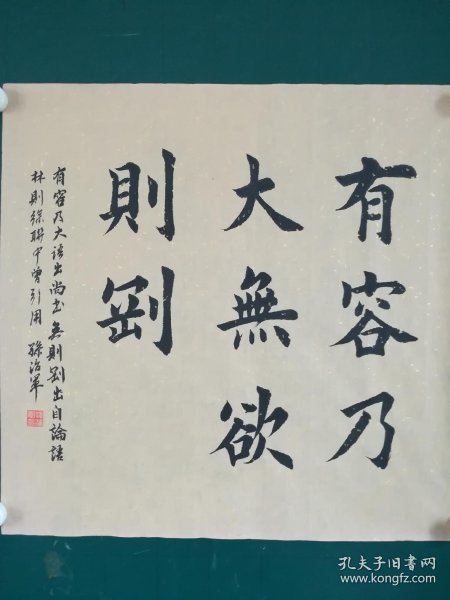 有容乃
大無欲
則剛
有容乃大语出尚书無則剛出自論語
林則徐聯中曾引用 孫治軍
孔夫子旧书网
www.kongfz.com